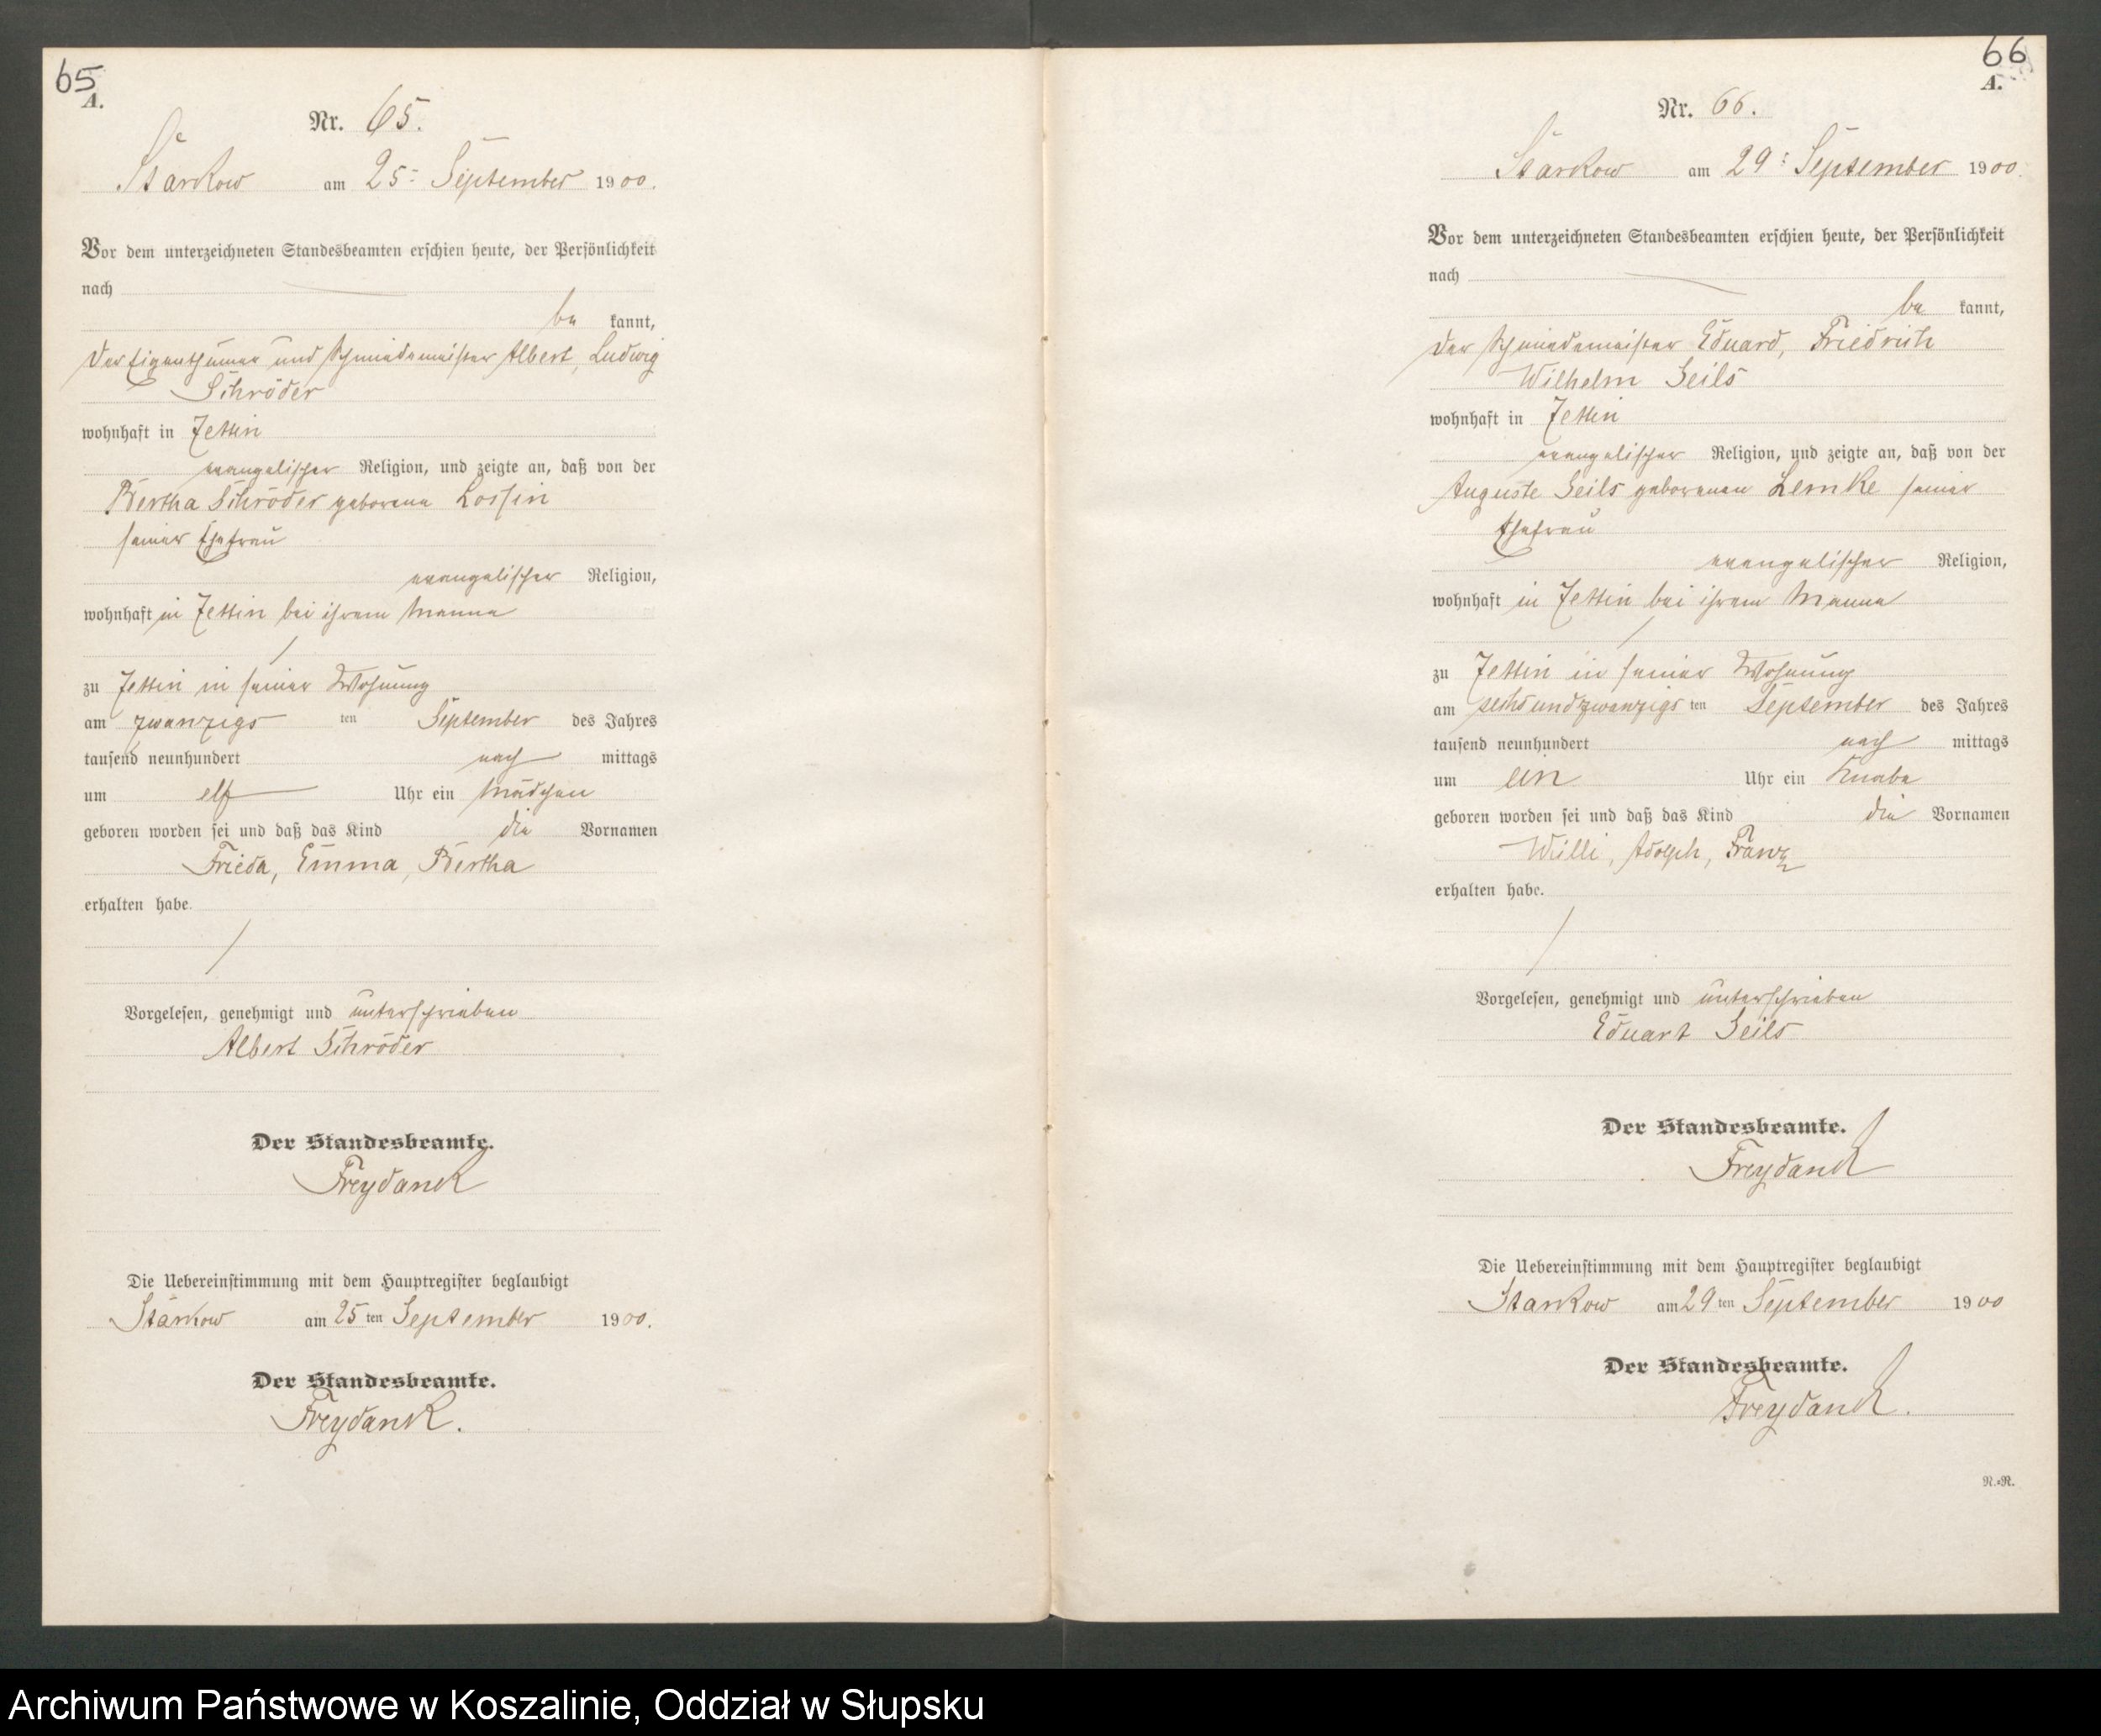 65
A.
Nr. 65.
Starkow am 25ᵗ September 1900.
Vor dem unterzeichneten Standesbeamten erschien heute, der Persönlichkeit
nach
be kannt,
der Eigenthümer und Schmiedemeister Albert, Ludwig
Schröder
wohnhaft in Jettin
evangelischer Religion, und zeigte an, daß von der
Bertha Schröder geborene Lossin
seiner Ehefrau
evangelischer Religion,
wohnhaft in Jettin bei ihrem Manne
zu Jettin in seiner Wohnung
am zwanzigs ten September des Jahres
tausend neunhundert nach mittags
um elf Uhr ein Mädchen
geboren worden sei und daß das Kind die Vornamen
Frieda, Emma, Bertha
erhalten habe.
Vorgelesen, genehmigt und unterschrieben
Albert Schröder
Der Standesbeamte.
Freydank
Die Uebereinstimmung mit dem Hauptregister beglaubigt
Starkow am 25 ten September 1900.
Der Standesbeamte.
Freydank.
66
A.
Nr. 66.
Starkow am 29ᵗ September 1900.
Vor dem unterzeichneten Standesbeamten erschien heute, der Persönlichkeit
nach
be kannt,
der Schmiedemeister Eduard, Friedrich
Wilhelm Seils
wohnhaft in Jettin
evangelischer Religion, und zeigte an, daß von der
Auguste Seils geborenen Lemke seiner
Ehefrau
evangelischer Religion,
wohnhaft in Jettin bei ihrem Manne
zu Jettin in seiner Wohnung
am sechsundzwanzigs ten September des Jahres
tausend neunhundert nach mittags
um ein Uhr ein Knabe
geboren worden sei und daß das Kind die Vornamen
Willi, Adolph, Franz
erhalten habe.
Vorgelesen, genehmigt und unterschrieben
Eduart Seils
Der Standesbeamte.
Freydank
Die Uebereinstimmung mit dem Hauptregister beglaubigt
Starkow am 29 ten September 1900
Der Standesbeamte.
Freydank.
R.=R.
Archiwum Państwowe w Koszalinie, Oddział w Słupsku